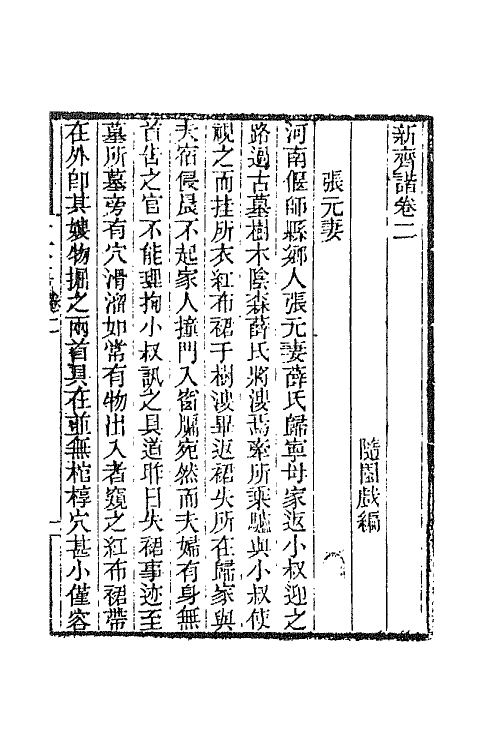 新齊諧卷二
隨園戲編
張元妻
河南偃師縣鄉人張元妻薛氏歸寧母家返小叔迎之
路過古墓樹木陰森薛氏將溲焉牽所乘驢與小叔使
視之而挂所衣紅布裙于樹溲畢返裙失所在歸家與
夫宿侵晨不起家人撞門入窗牖宛然而夫婦有身無
首告之官不能理拘小叔訊之具道昨日失裙事迹至
墓所墓旁有穴滑溜如常有物出入者窺之紅布裙帶
在外即其嫂物掘之兩首具在並無棺槨穴甚小僅容